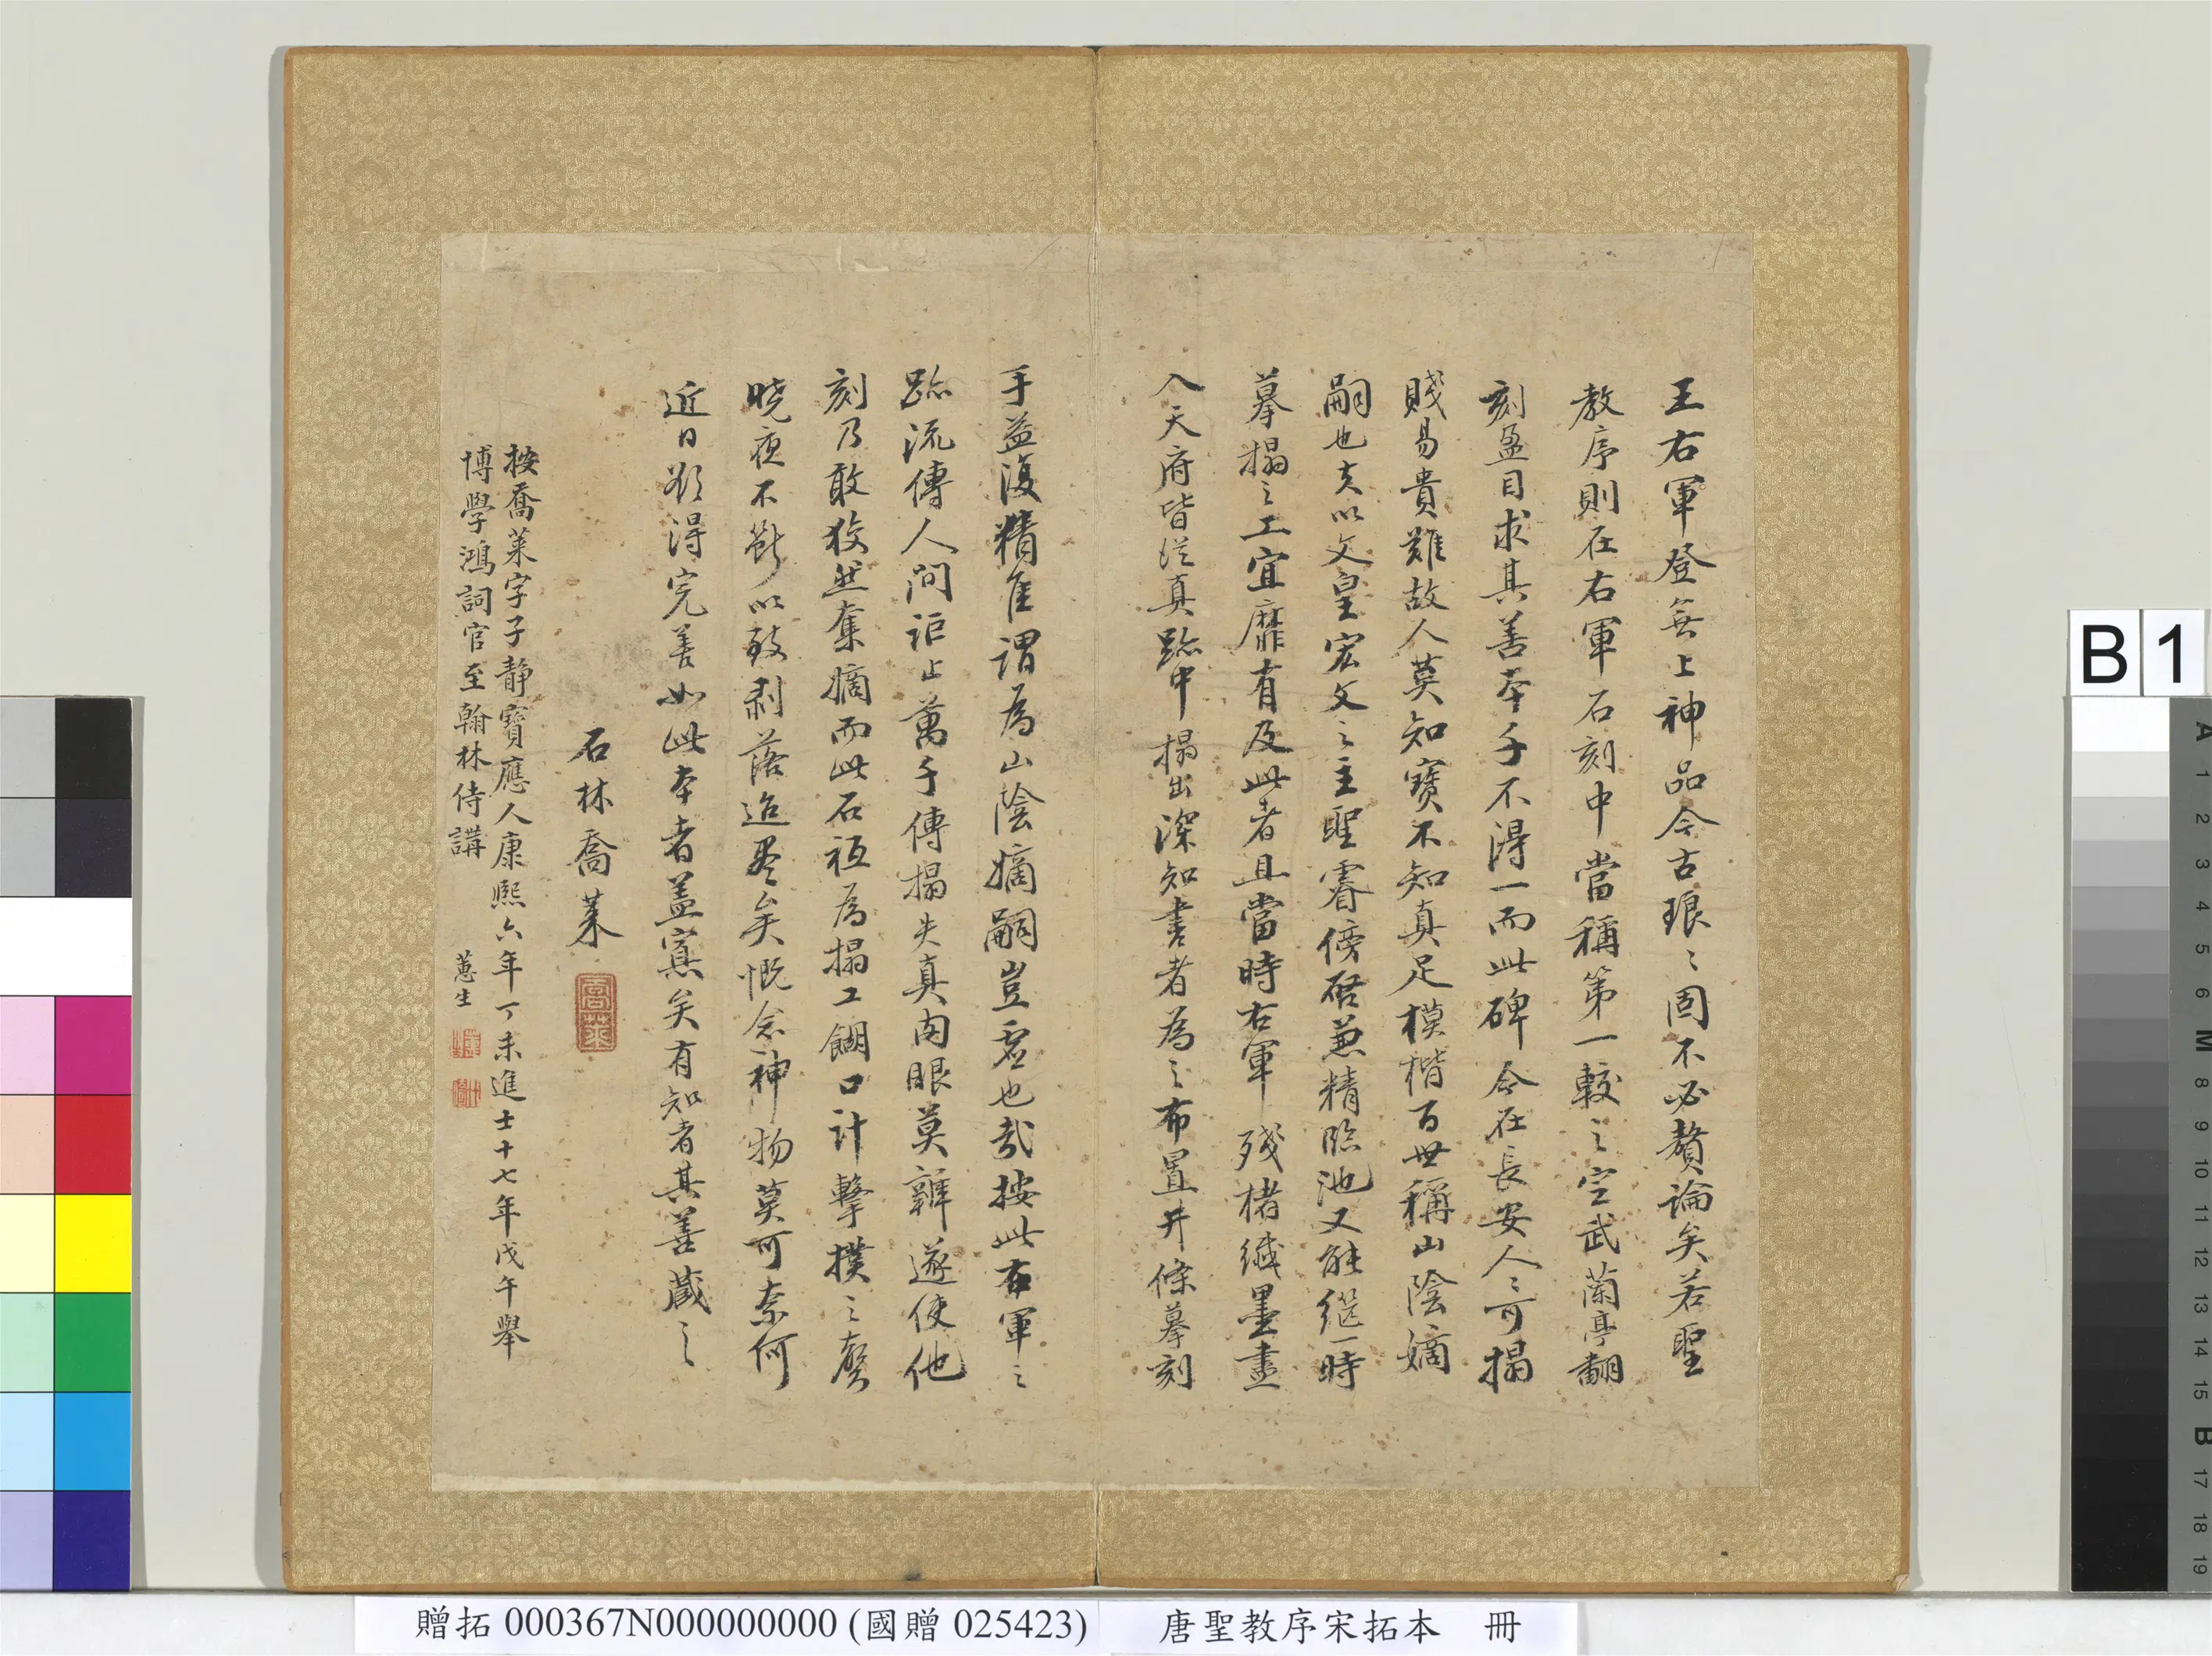 王右軍登無上神品今古琅〻固不必贅論矣若聖
教序則在右軍石刻中當稱第一較之定武蘭亭翻
刻盈目求其善本千不得一而此碑今在長安人〻可搨
賤易貴難故人莫知寶不知真足模楷百世稱山陰嫡
嗣也夫以文皇宏文之主聖睿傍啓兼精臨池又能一時
摹搨之工宜靡有及此者且當時右軍殘楮纖墨盡
入天府皆從真跡中搨出深知書者為之布置井條摹刻
手益復精隹謂為山陰嫡嗣豈虛也哉按此右軍之
跡流傳人間詎止萬千傳搨失真肉眼莫辨遂使他
刻乃敢狡然奪嫡而此石祗為搨工餬口計擊撲之聲
曉夜不斷以致剥落迨盡矣慨念神物莫可奈何
近日欲得完善如此本者盖寡矣有知者其善蔵之
石林喬萊
喬萊
按喬萊字子静寶應人康熙六年丁未進士十七年戊午舉
博學鴻詞官至翰林侍講
蕙生
贈拓 000367N000000000 (國贈 025423)
唐聖教序宋拓本 冊
B 1
A 1 2 3 4 5 6 M 8 9 10 11 12 13 14 15 B 17 18 19